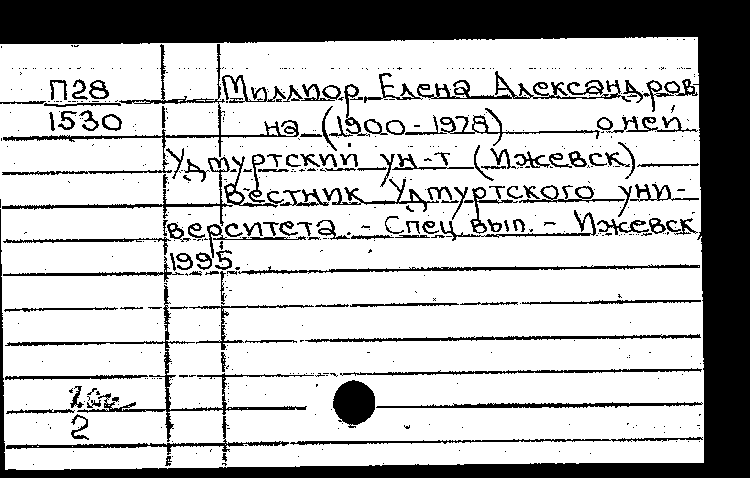 П28 Миллиор, Елена Александров
1530 на (1900-1978) о ней
Удмуртский ун-т (Ижевск)
Вестник Удмуртского уни-
верситета. - Спец. вып. - Ижевск,
1995.
2